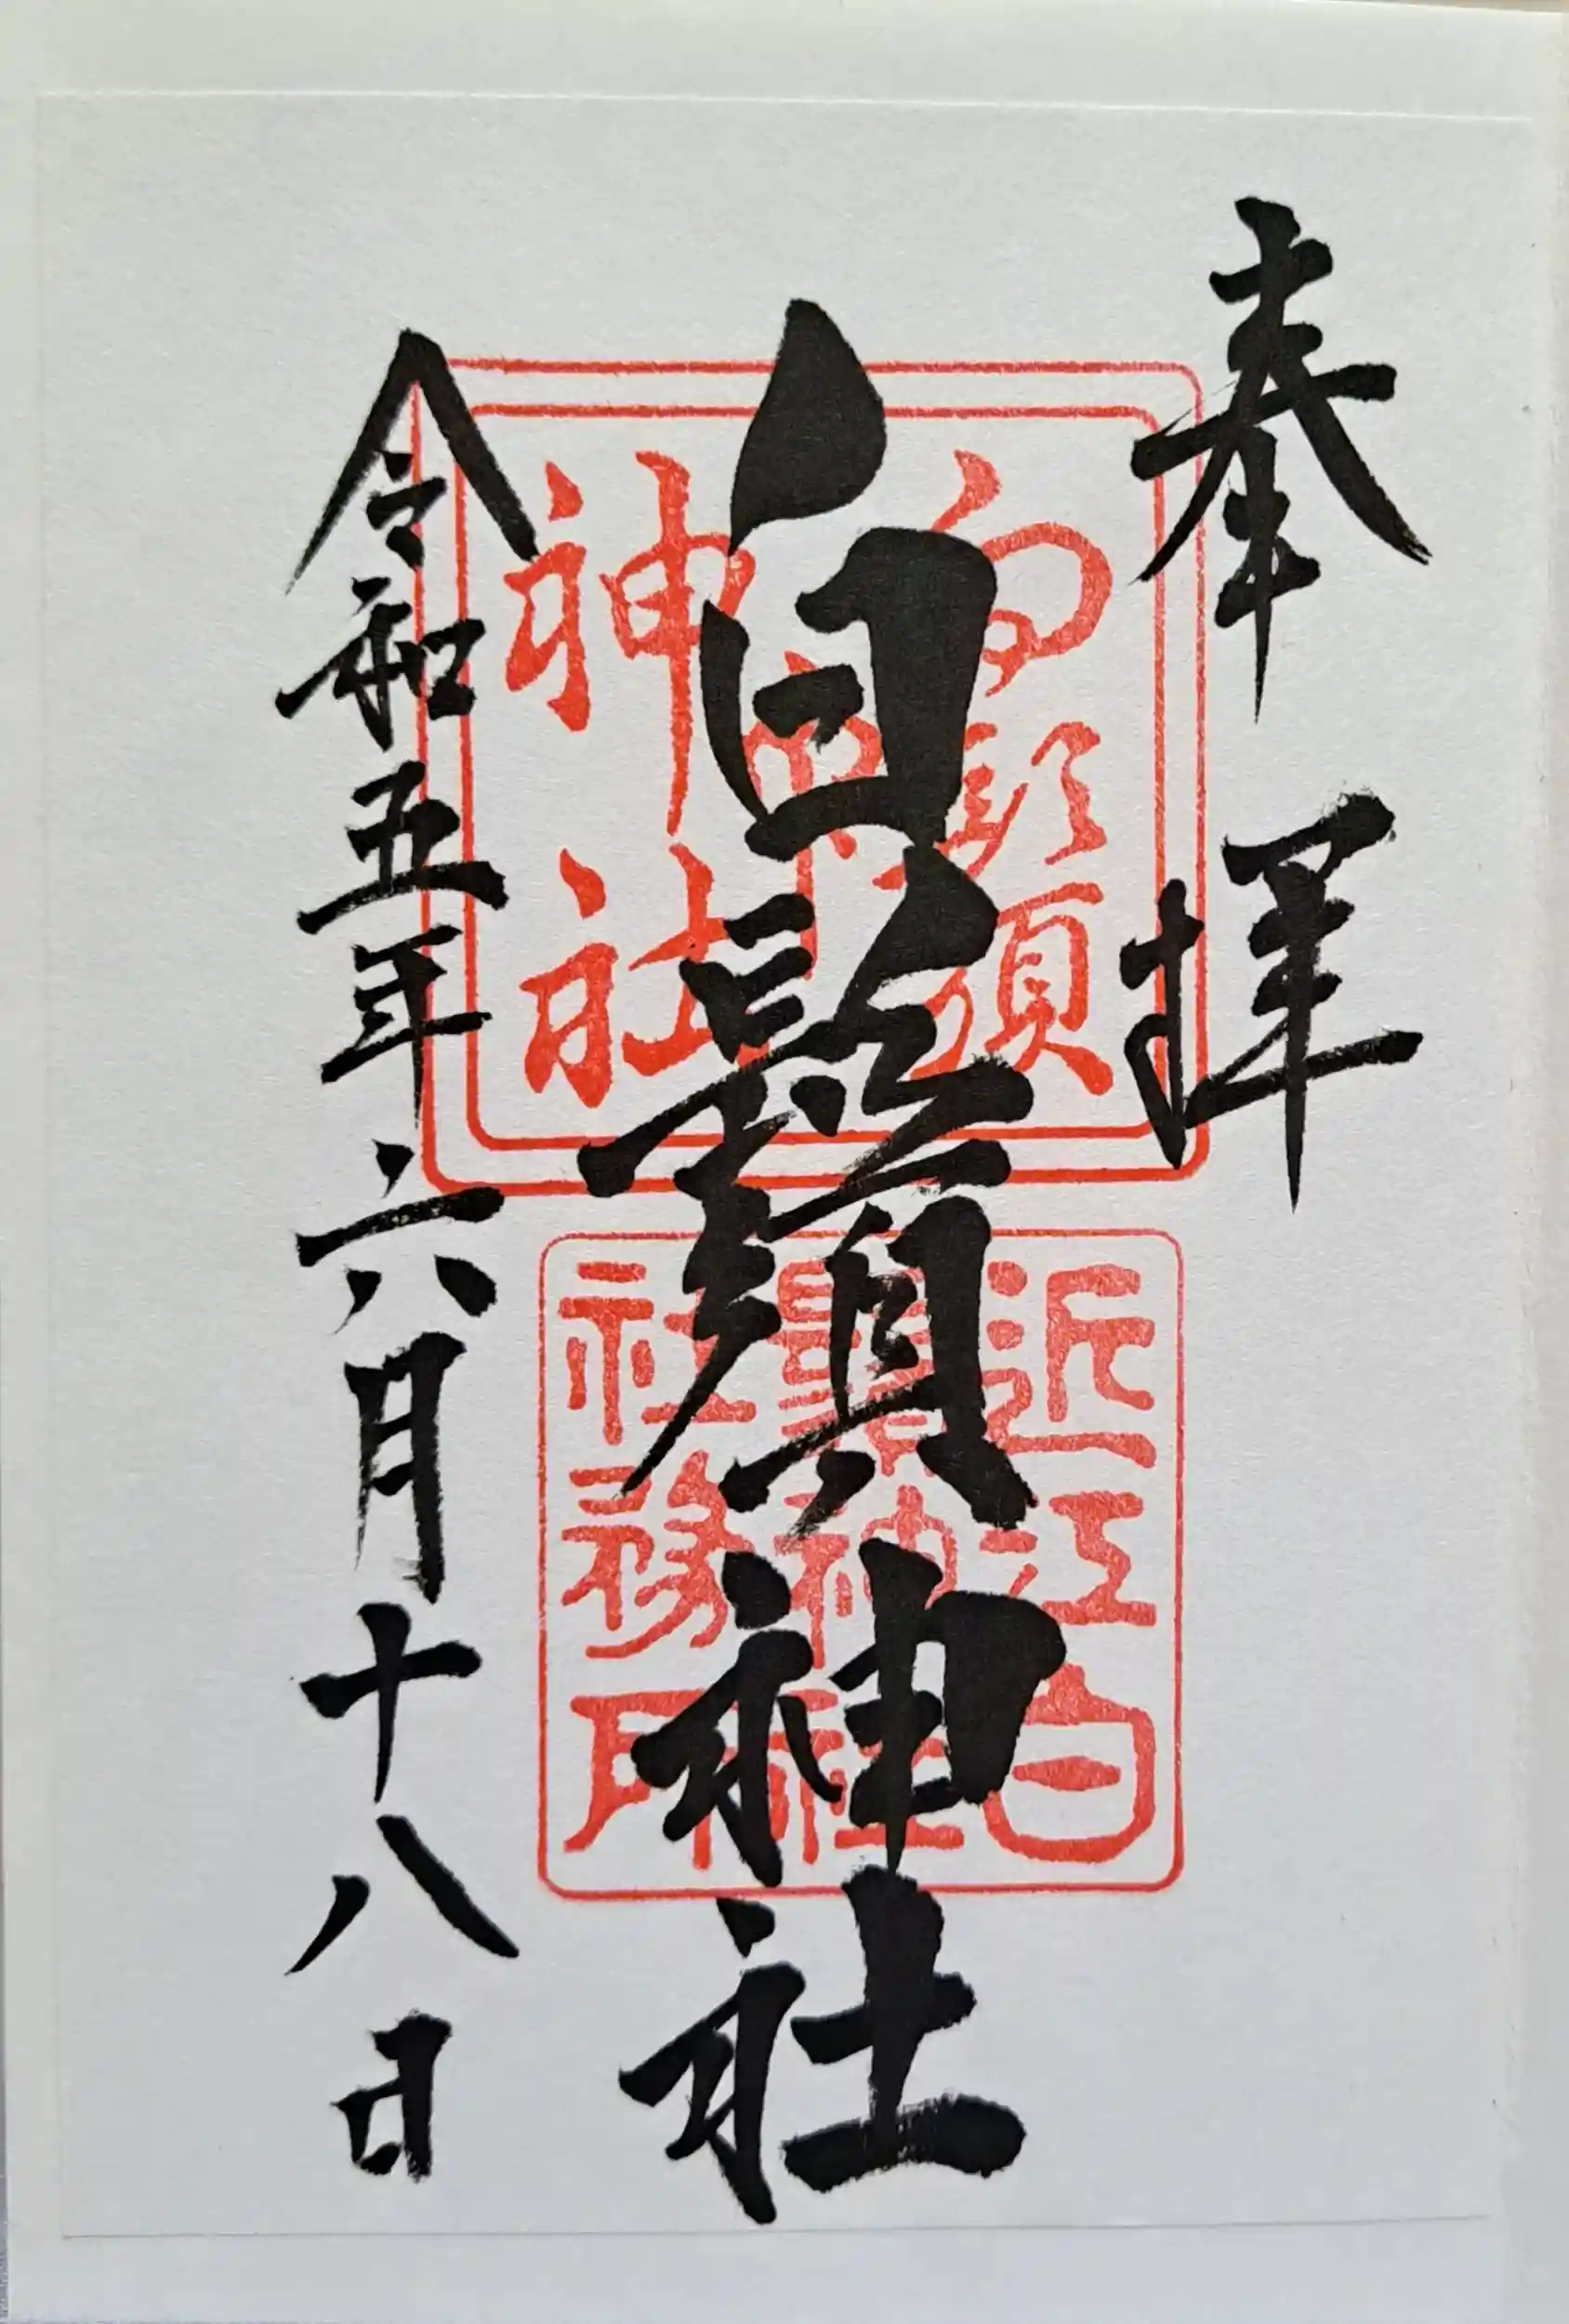 奉拝
白鬚神社
令和五年六月十八日
白鬚
大明
神社
近江白
鬚神社
社務所